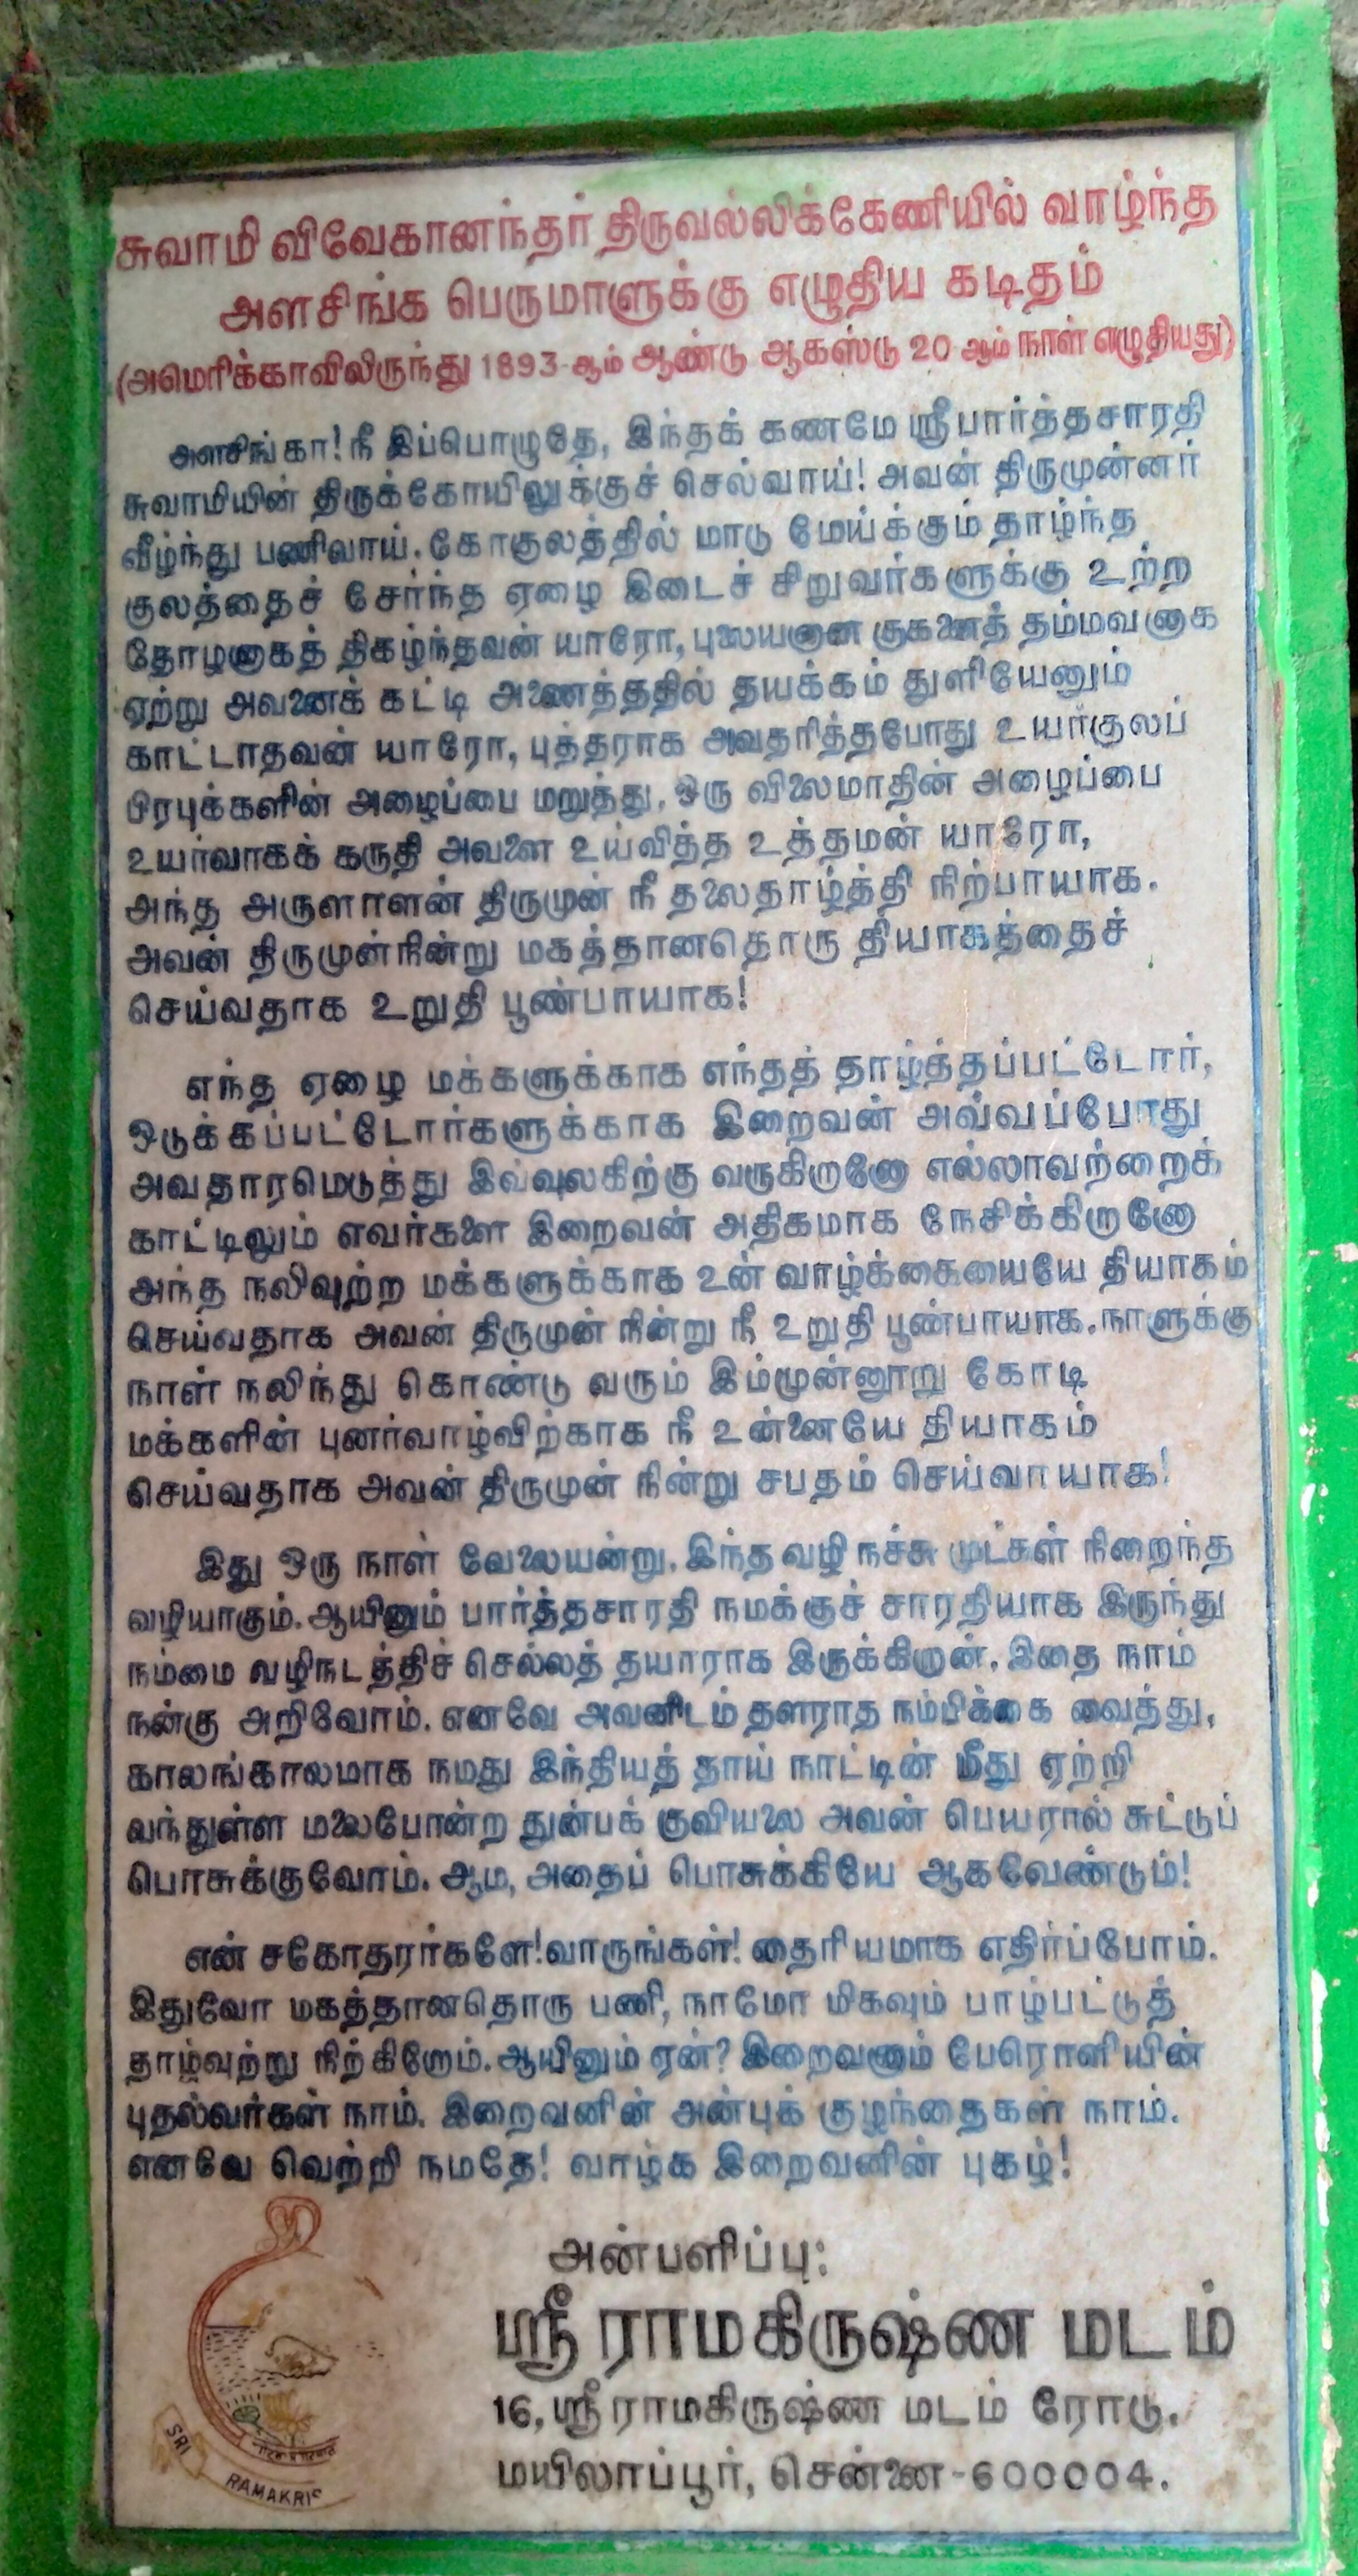 சுவாமி விவேகானந்தர் திருவல்லிக்கேணியில் வாழ்ந்த
அளசிங்க பெருமாளுக்கு எழுதிய கடிதம்
(அமெரிக்காவிலிருந்து 1893-ஆம் ஆண்டு ஆகஸ்டு 20-ஆம் நாள் எழுதியது)
அளசிங்கா! நீ இப்பொழுதே, இந்தக் கணமே ஸ்ரீ பார்த்தசாரதி
சுவாமியின் திருக்கோயிலுக்குச் செல்வாய்! அவன் திருமுன்னர்
வீழ்ந்து பணிவாய். கோகுலத்தில் மாடு மேய்க்கும் தாழ்ந்த
குலத்தைச் சேர்ந்த ஏழை இடைச் சிறுவர்களுக்கு உற்ற
தோழனாகத் திகழ்ந்தவன் யாரோ, புலையனான குகனைத் தம்மவனாக
ஏற்று அவனைக் கட்டி அணைத்ததில் தயக்கம் துளியேனும்
காட்டாதவன் யாரோ, புத்தராக அவதரித்தபோது உயர்குலப்
பிரபுக்களின் அழைப்பை மறுத்து, ஒரு விலைமாதின் அழைப்பை
உயர்வாகக் கருதி அவளை உய்வித்த உத்தமன் யாரோ,
அந்த அருளாளன் திருமுன் நீ தலைதாழ்த்தி நிற்பாயாக.
அவன் திருமுன்நின்று மகத்தானதொரு தியாகத்தைச்
செய்வதாக உறுதி பூண்பாயாக!
எந்த ஏழை மக்களுக்காக எந்தத் தாழ்த்தப்பட்டோர்,
ஒடுக்கப்பட்டோர்களுக்காக இறைவன் அவ்வப்போது
அவதாரமெடுத்து இவ்வுலகிற்கு வருகிறானோ எல்லாவற்றைக்
காட்டிலும் எவர்களை இறைவன் அதிகமாக நேசிக்கிறானோ
அந்த நலிவுற்ற மக்களுக்காக உன் வாழ்க்கையையே தியாகம்
செய்வதாக அவன் திருமுன் நின்று நீ உறுதி பூண்பாயாக. நாளுக்கு
நாள் நலிந்து கொண்டு வரும் இம்முன்னூறு கோடி
மக்களின் புனர்வாழ்விற்காக நீ உன்னையே தியாகம்
செய்வதாக அவன் திருமுன் நின்று சபதம் செய்வாயாக!
இது ஒரு நாள் வேலையன்று. இந்த வழி நச்சு முட்கள் நிறைந்த
வழியாகும். ஆயினும் பார்த்தசாரதி நமக்குச் சாரதியாக இருந்து
நம்மை வழிநடத்திச் செல்லத் தயாராக இருக்கிறான். இதை நாம்
நன்கு அறிவோம். எனவே அவனிடம் தளராத நம்பிக்கை வைத்து,
காலங்காலமாக நமது இந்தியத் தாய் நாட்டின் மீது ஏற்றி
வந்துள்ள மலைபோன்ற துன்பக் குவியலை அவன் பெயரால் சுட்டுப்
பொசுக்குவோம். ஆம, அதைப் பொசுக்கியே ஆகவேண்டும்!
என் சகோதரர்களே! வாருங்கள்! தைரியமாக எதிர்ப்போம்.
இதுவோ மகத்தானதொரு பணி, நாமோ மிகவும் பாழ்பட்டுத்
தாழ்வுற்று நிற்கிறோம். ஆயினும் ஏன்? இறைவனாம் பேரொளியின்
புதல்வர்கள் நாம். இறைவனின் அன்புக் குழந்தைகள் நாம்.
எனவே வெற்றி நமதே! வாழ்க இறைவனின் புகழ்!
அன்பளிப்பு:
ஸ்ரீ ராமகிருஷ்ண மடம்
16, ஸ்ரீ ராமகிருஷ்ண மடம் ரோடு,
மயிலாப்பூர், சென்னை-600004.
SRI
RAMAKRIS